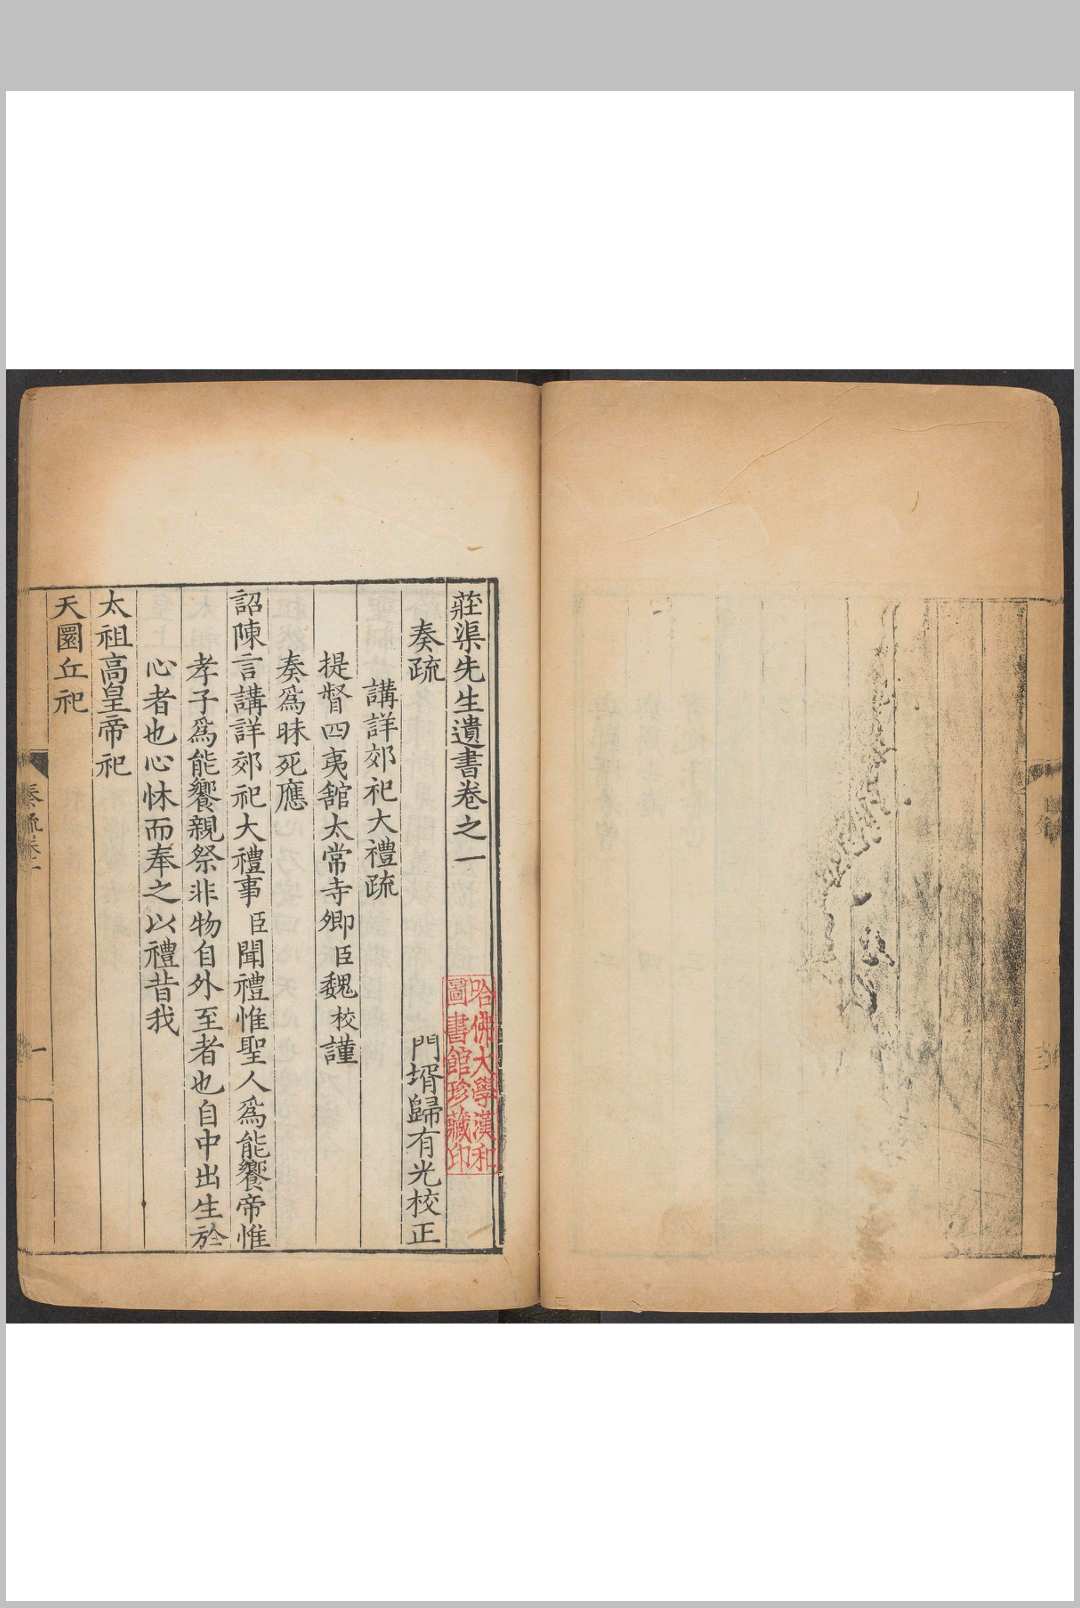 莊渠先生遺書卷之一
奏疏
門壻歸有光校正
講詳郊祀大禮疏
提督四夷舘太常寺卿臣魏校謹
奏爲昧死應
詔陳言講詳郊祀大禮事臣聞禮惟聖人爲能饗帝惟
孝子爲能饗親祭非物自外至者也自中出生於
心者也心怵而奉之以禮昔我
太祖高皇帝祀
天圜丘祀
奏疏卷一
一
哈佛大學漢和
圖書館珍藏印